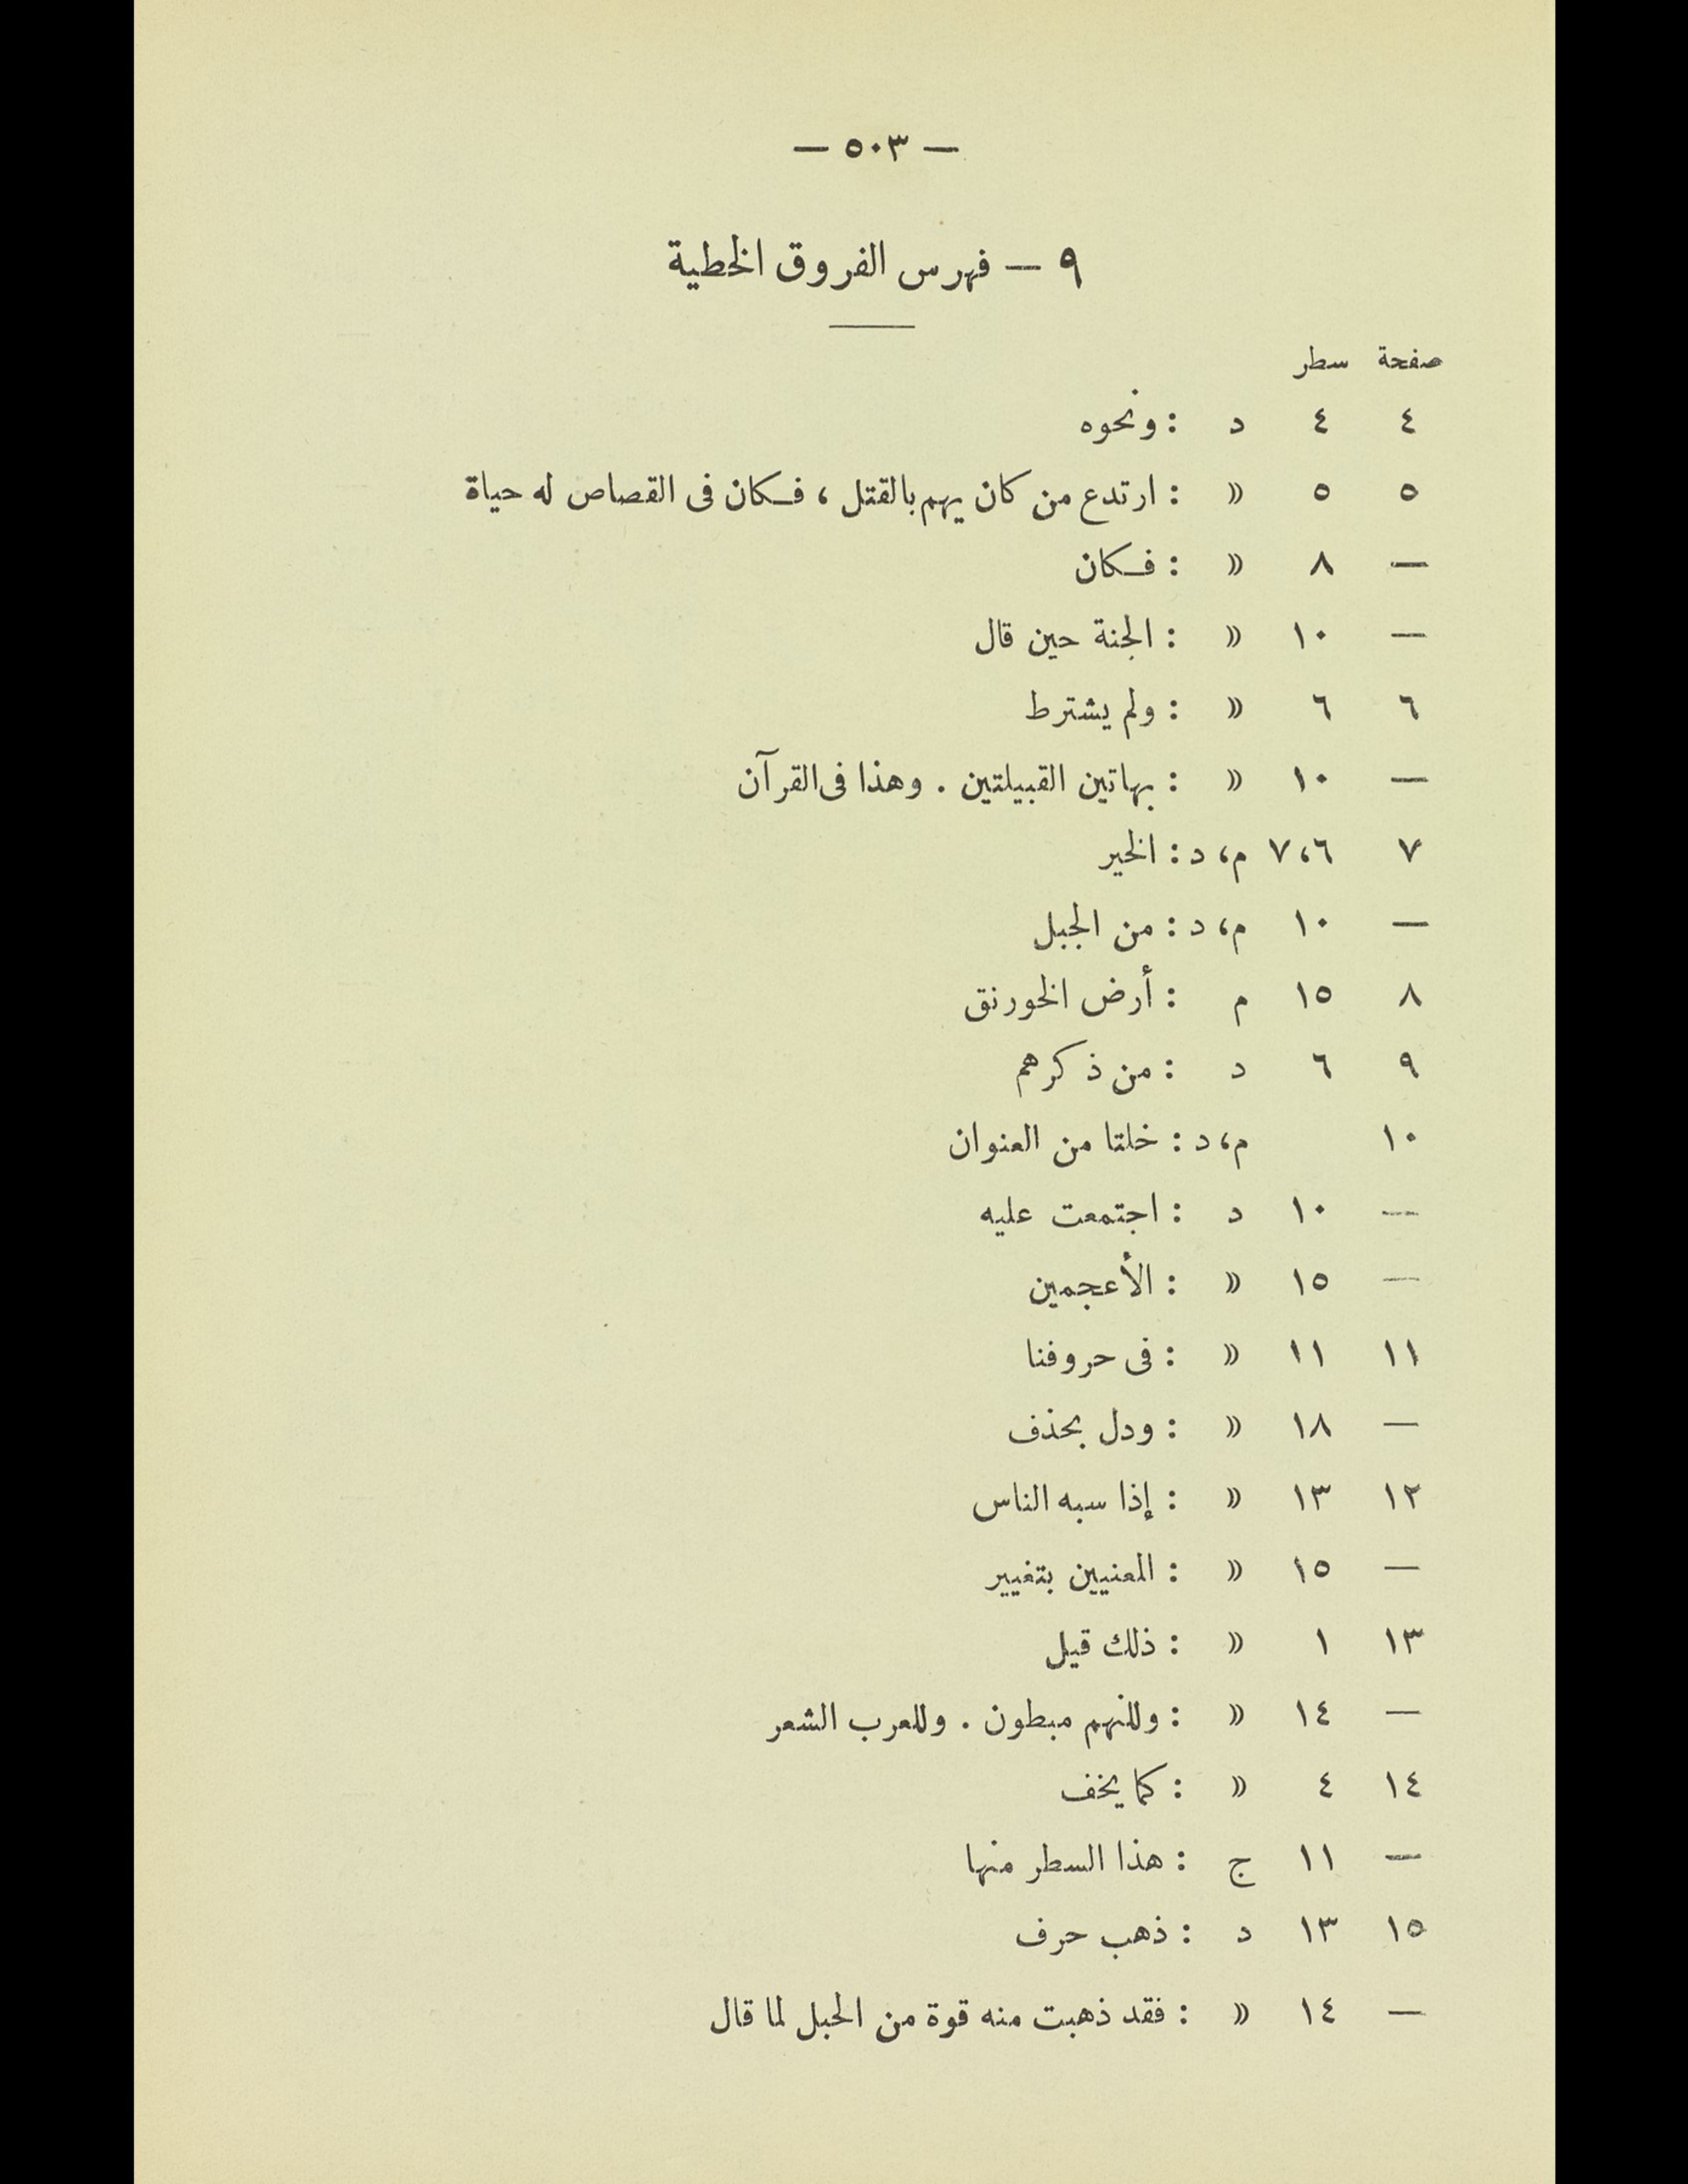 — ٥٠٣ —
٩ — فهرس الفروق الخطية
صفحة سطر
٤ ٤ د : ونحوه
٥ ٥ » : ارتدع من كان يهم بالقتل ، فكان فى القصاص له حياة
— ٨ » : فكان
— ١٠ » : الجنة حين قال
٦ ٦ » : ولم يشترط
— ١٠ » : بهاتين القبيلتين . وهذا فى القرآن
٧ ٦، ٧ م، د : الخير
— ١٠ م، د : من الجبل
٨ ١٥ م : أرض الخورنق
٩ ٦ د : من ذكرهم
١٠ م، د : خلتا من العنوان
— ١٠ د : اجتمعت عليه
— ١٥ » : الأعجمين
١١ ١١ » : فى حروفنا
— ١٨ » : ودل بحذف
١٢ ١٣ » : إذا سبه الناس
— ١٥ » : المعنيين بتغيير
١٣ ١ » : ذلك قيل
— ١٤ » : وللنهم مبطون . وللعرب الشعر
١٤ ٤ » : كما يخف
— ١١ ج : هذا السطر منها
١٥ ١٣ د : ذهب حرف
— ١٤ » : فقد ذهبت منه قوة من الحبل لما قال